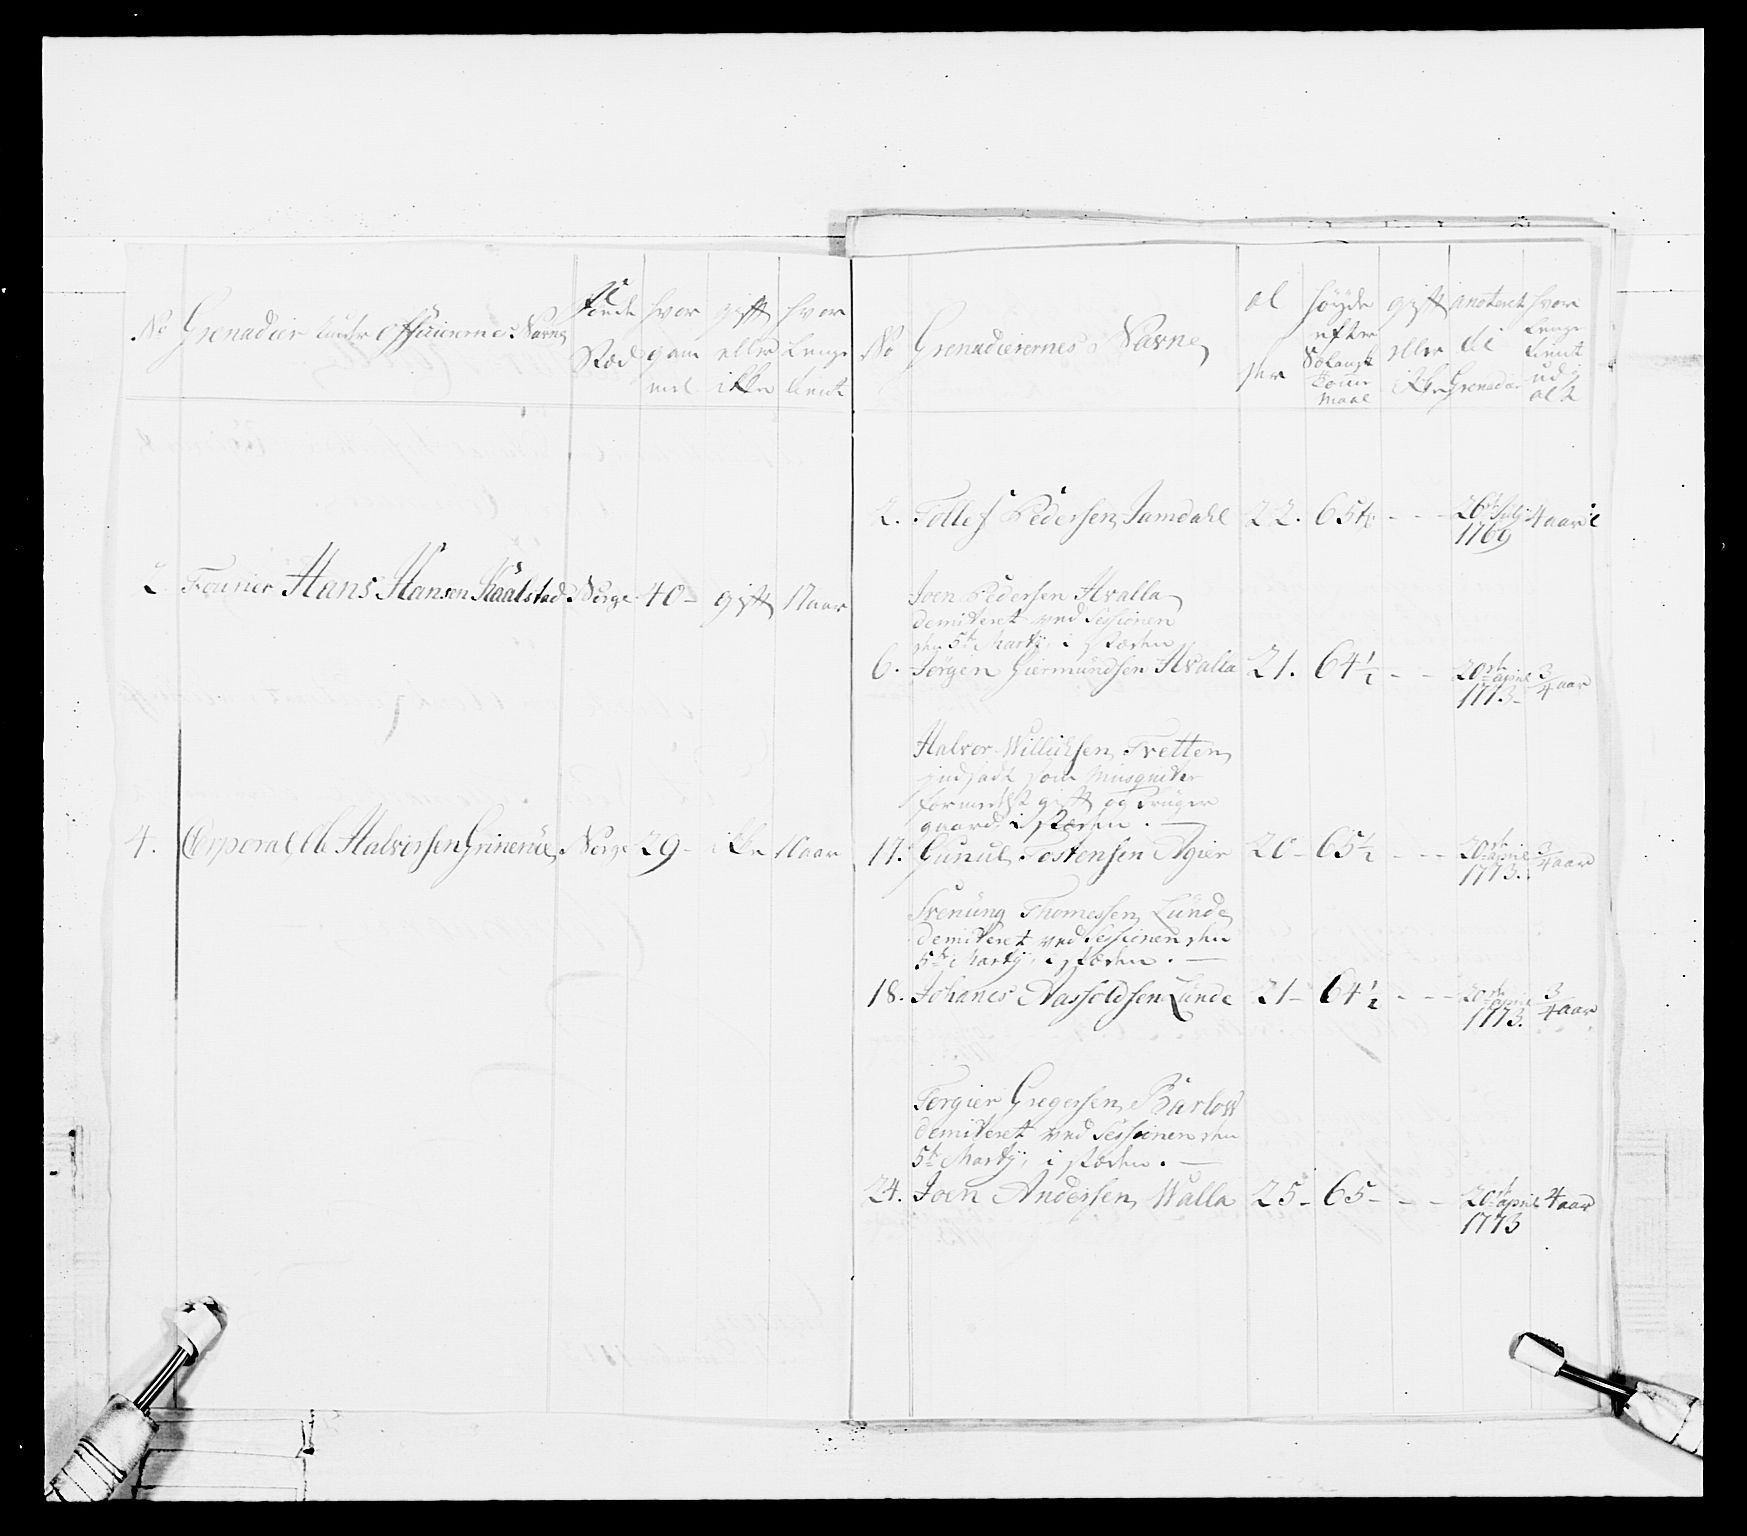 No Grenadier under Officierernes Navne
Føde Stæd
hvor gam mel
gift eller ikke
hvor lenge tient
2 Fourier Hans Hansen Kaalstad Norge 40 – gift 17 aar
4. Corporal Ole Halvorsen Norge 29 – ikke 10 aar
No Grenaderernes Navne
al der
Høyde efter
maal
gift eller ikke
anotert til Grenader
hvor lenge tient ud i alt
2. Tollef Pedersen Jamdahl 22. 65½ - - - 26de July 1769 4 aar
Joen Pedersen Hvalla
demiteret ved Sessionen
den 5te Martÿ, i stæden
6. Jørgen Giermundsen Hvalla 21. 64½ - - 20de april 1773 – ¾ aar
Halvor Tvetten
indsadt som Musqueter
formedelst gift og bruger
gaard, i stæden. —
17. Gunul Tostensen Agier 20 – 65½ - - - 20de april 1773. ¾ aar
Svenüng Thomessen Lünde
demiteret ved Sessionen den
5te Martÿ, i stæden. —
18. Johanes Lünde 21 – 64½ - - - 20de april 1773. ¾ aar
Torgier Gregersen Barlow
demiteret ved Sessionen den
5te Martÿ, i stæden. —
24. Joen Andersen Walla 25 – 65 – - - 20de april 1773 4 aar